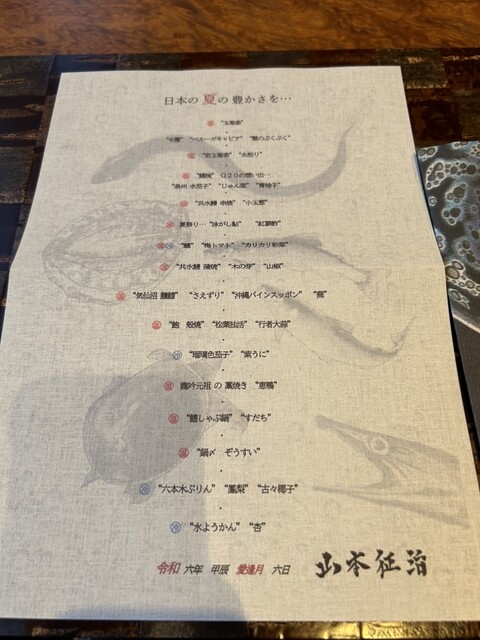 日本の 夏の 豊かさを…
温 “玉蜀黍”
“小鷺” “ベルーガキャビア” “鱧のぷくぷく”
温 “若玉蜀黍” “糸削り”
温 G20の想い出…
“泉州 水茄子” “じゅん菜” “青柚子”
温 “共水鰻 串焼” “小玉葱”
温 夏祭り… “泳がし鮎” “紅蓼酢”
“梅トマト” “カリカリ
温 “共水鰻 蒲焼” “木の芽” “山椒”
温 “気仙沼 “さえずり” “沖縄パインスッポン” “蕪”
温 “鮑 殻焼” “松葉独活” “行者大蒜”
冷 “瑠璃色茄子” “紫うに”
温 龍吟元祖 の 藁焼き “恵鴨”
温 “鱧しゃぶ鍋” “すだち”
温 “鍋〆 ぞうすい”
冷 “六本木ぷりん” “鳳梨” “古々椰子”
冷 “水ようかん” “杏”
令和 六年 甲辰 愛逢月 六日 山本征治